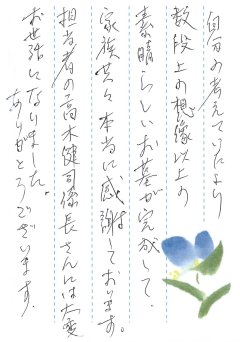 自分の考えていたより
数段上の想像以上の
素晴らしいお墓が完成して、
家族共々本当に感謝しております。
担当者の高木健司係長さんには大変
お世話になりました。
ありがとうございます。